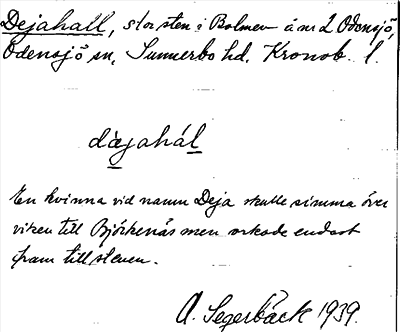 Dejahall, stor sten i Bolmen å nr 2 Odensjö,
Odensjö sn, Sunnerbo hd. Kronob. l.
dæjahál
En kvinna vid namn Deja skulle simma över
viken till Björkenäs men orkade endast
fram till stenen.
A. Segerbäck 1939.